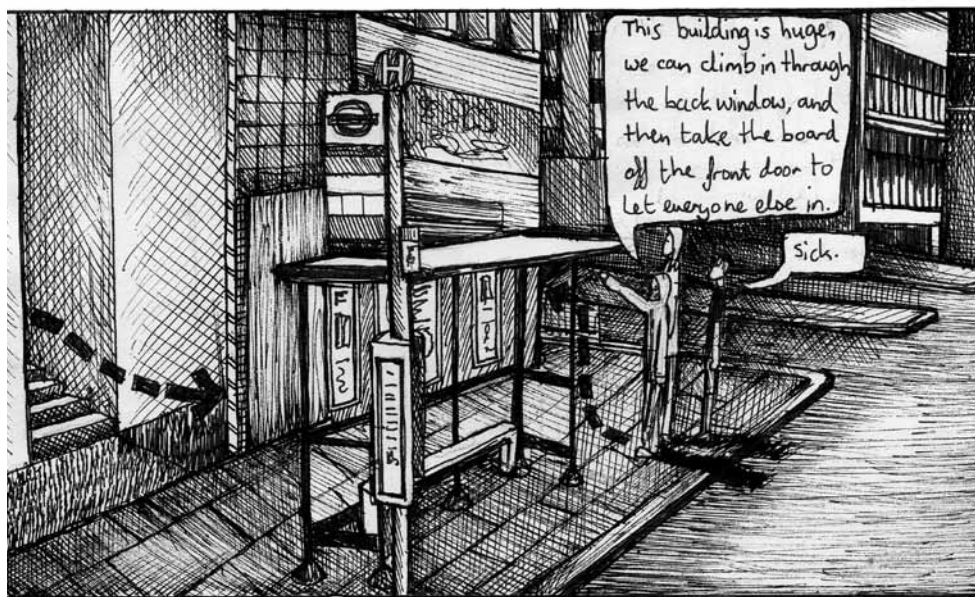 This building is huge,
we can climb in through
the back window, and
then take the board
off the front door to
let everyone else in.
Sick.
H